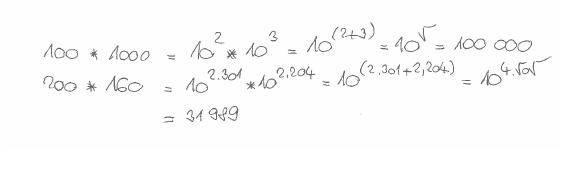 100 * 1000 = 10^2 * 10^3 = 10^(2+3) = 10^5 = 100 000
200 * 160 = 10^2.301 * 10^2.204 = 10^(2,301+2,204) = 10^4.505
= 31989